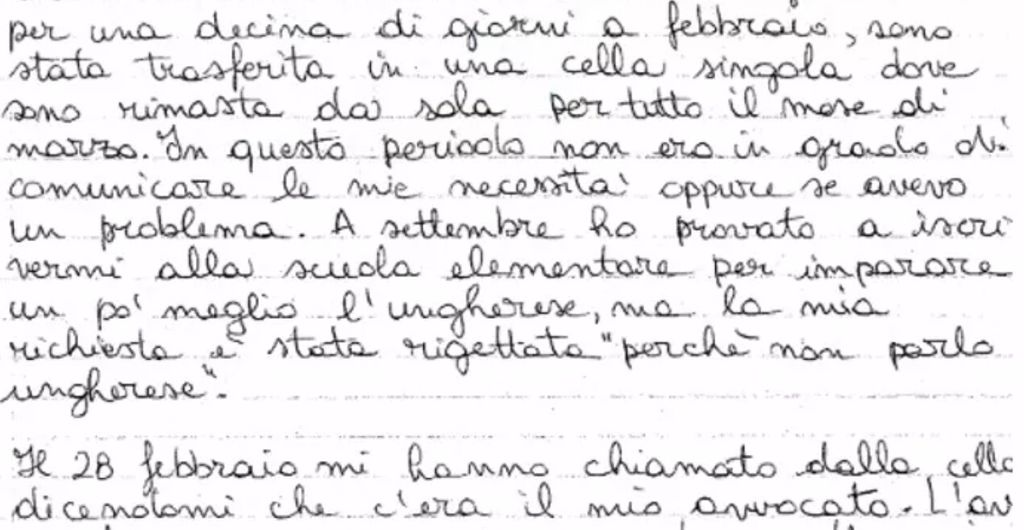 per una decina di giorni a febbraio, sono
stata trasferita in una cella singola dove
sono rimasta da sola per tutto il mese di
marzo. In questo periodo non ero in grado di
comunicare le mie necessità oppure se avevo
un problema. A settembre ho provato a iscri
vermi alla scuola elementare per imparare
un po' meglio l'ungherese, ma la mia
richiesta è stata rigettata "perchè non parlo
ungherese".
Il 28 febbraio mi hanno chiamato dalla cella
dicendomi che c'era il mio avvocato. L'av